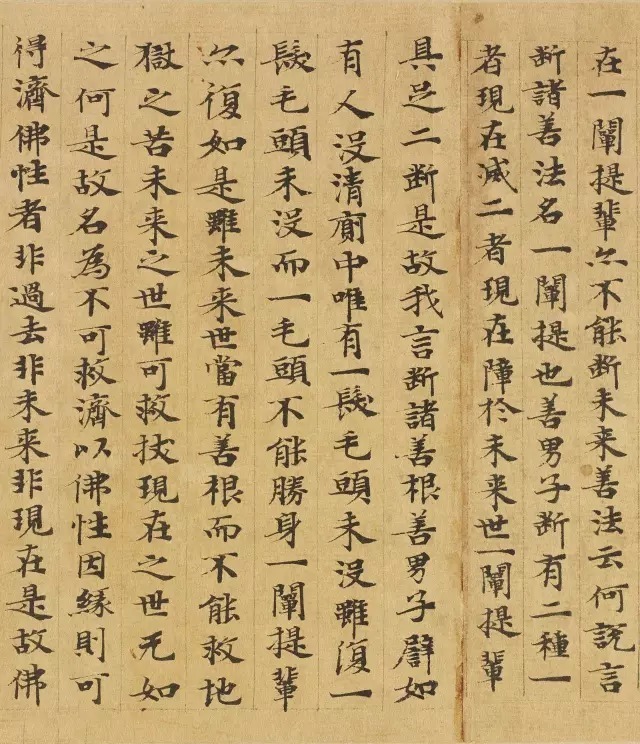 在一闡提輩亦不能断未来善法云何說言
断諸善法名一闡提也善男子断有二種一
者現在滅二者現在障於未来世一闡提輩
具足二断是故我言断諸善根善男子譬如
有人没清廁中唯有一髮毛頭未没雖復一
髮毛頭未没而一毛頭不能勝身一闡提輩
亦復如是雖未来世當有善根而不能救地
獄之苦未来之世雖可救抜現在之世无如
之何是故名為不可救濟以佛性因緣則可
得濟佛性者非過去非未来非現在是故佛